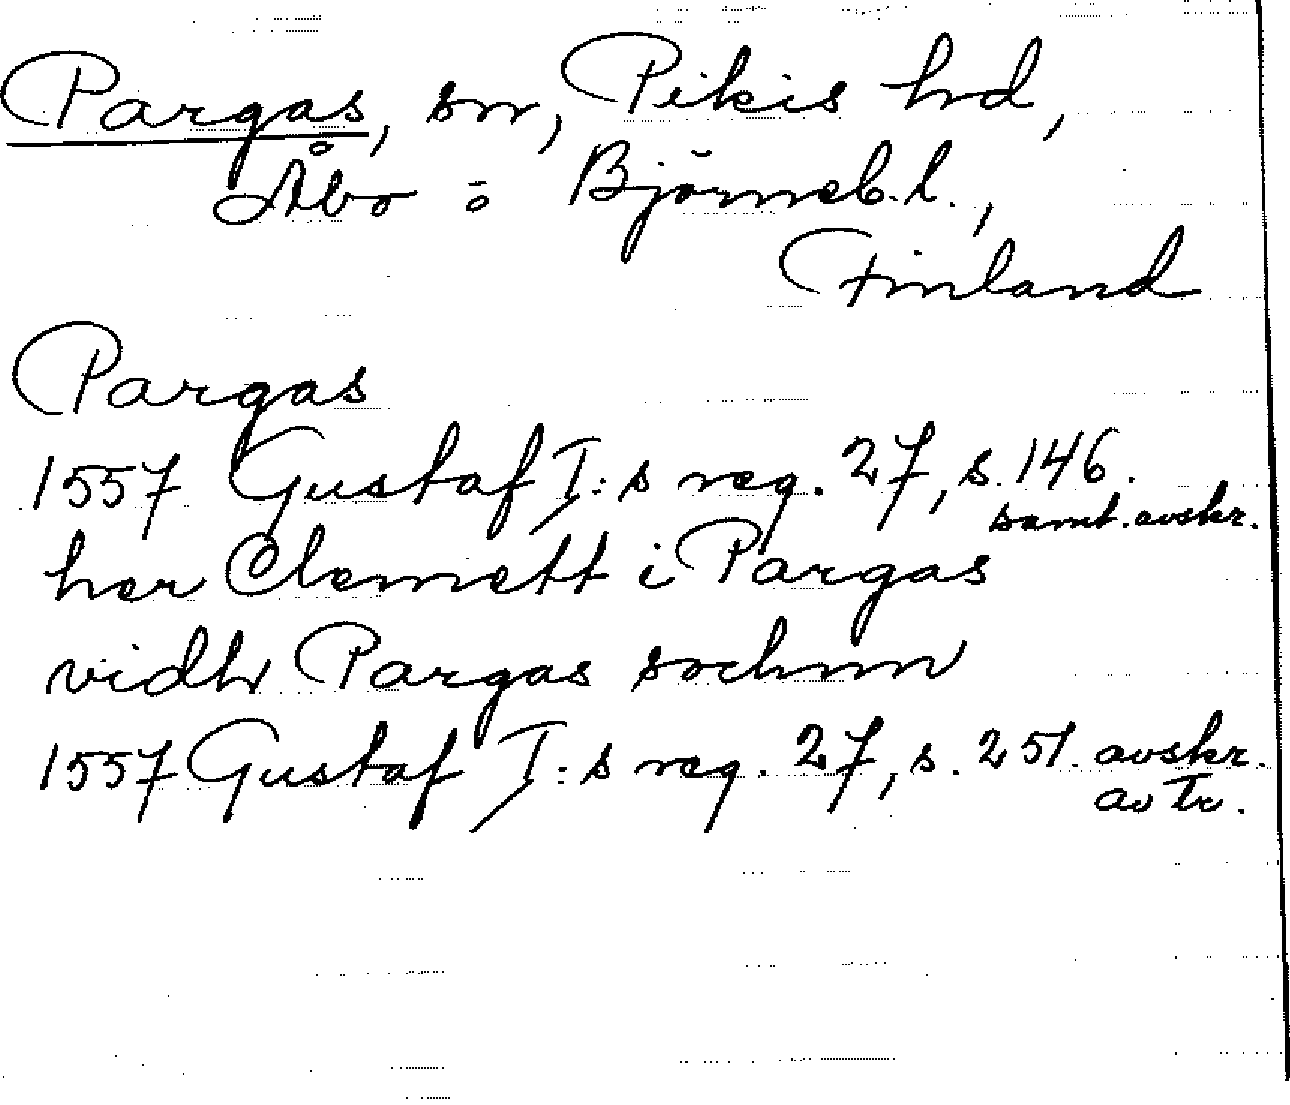 Pargas, sn, Pikis hd,
Åbo o Björneb.l.,
Finland
Pargas
1557 Gustaf I:s reg. 27, s. 146.
samt. avskr.
her Clemett i Pargas
vidh Pargas sochnn
1557 Gustaf I:s reg. 27, s. 251. avskr.
av Tr.